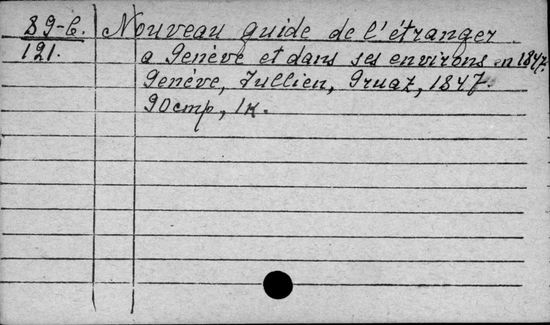 89-6. Nouveau guide de l'étranger
121. a Genève et dans ses environs en 1847.
Genéve, Jullien, Gruaz, 1847.
90 cmp, 1 к.